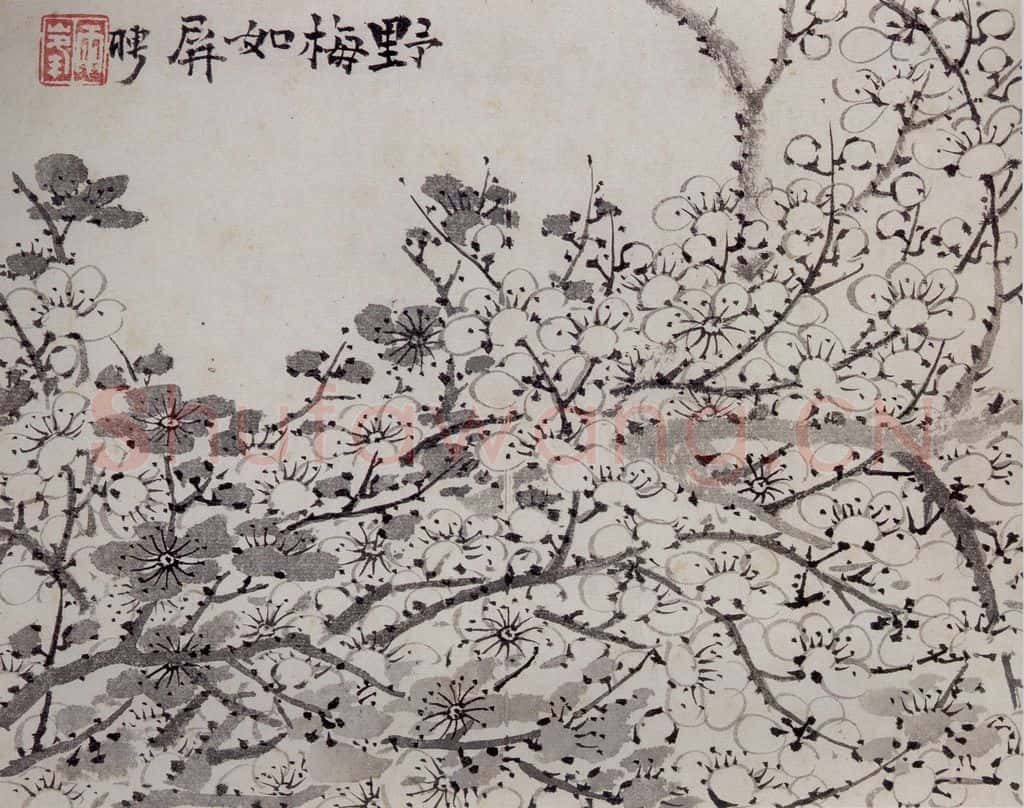 野梅如屏 聘
兩峯
Shufawang.CN